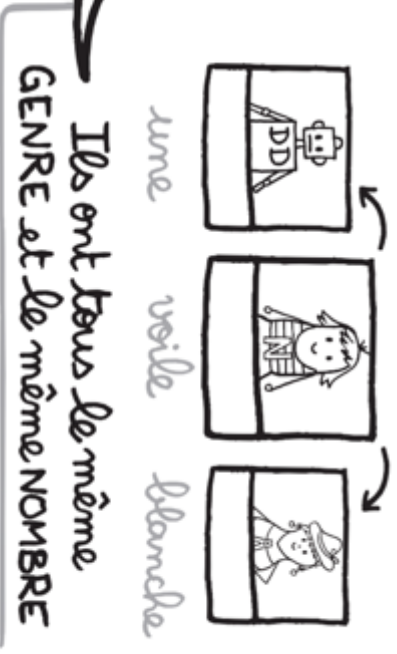 DD
N
une voile blanche
Ils ont tous le même
GENRE et le même NOMBRE